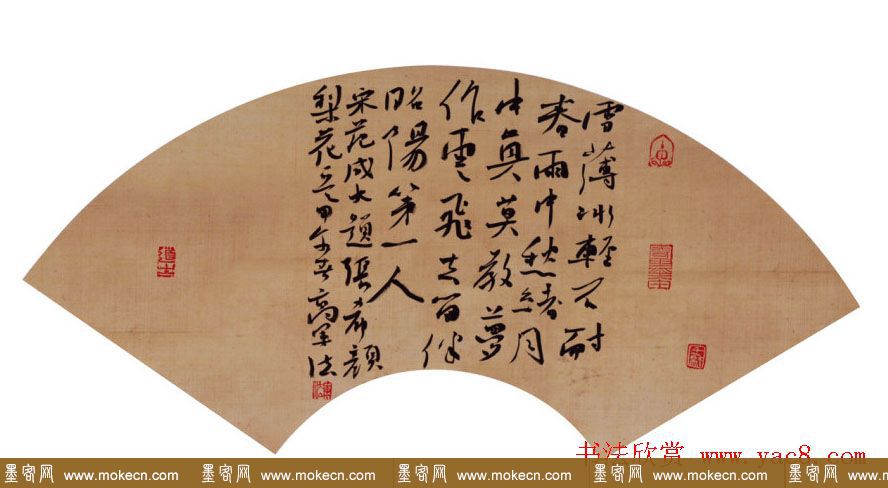 雪薄冰輕不耐
春雨中愁緒月
中真莫教夢
作雲飛去留伴
昭陽第一人
宋范成大題張希顏
梨花 甲午春高軍法
书法欣赏 www.yac8.com
墨客网 www.mokecn.com 墨客网 www.mokecn.com 墨客网 www.mokecn.com 墨客网 www.mokecn.com 墨客网 www.m